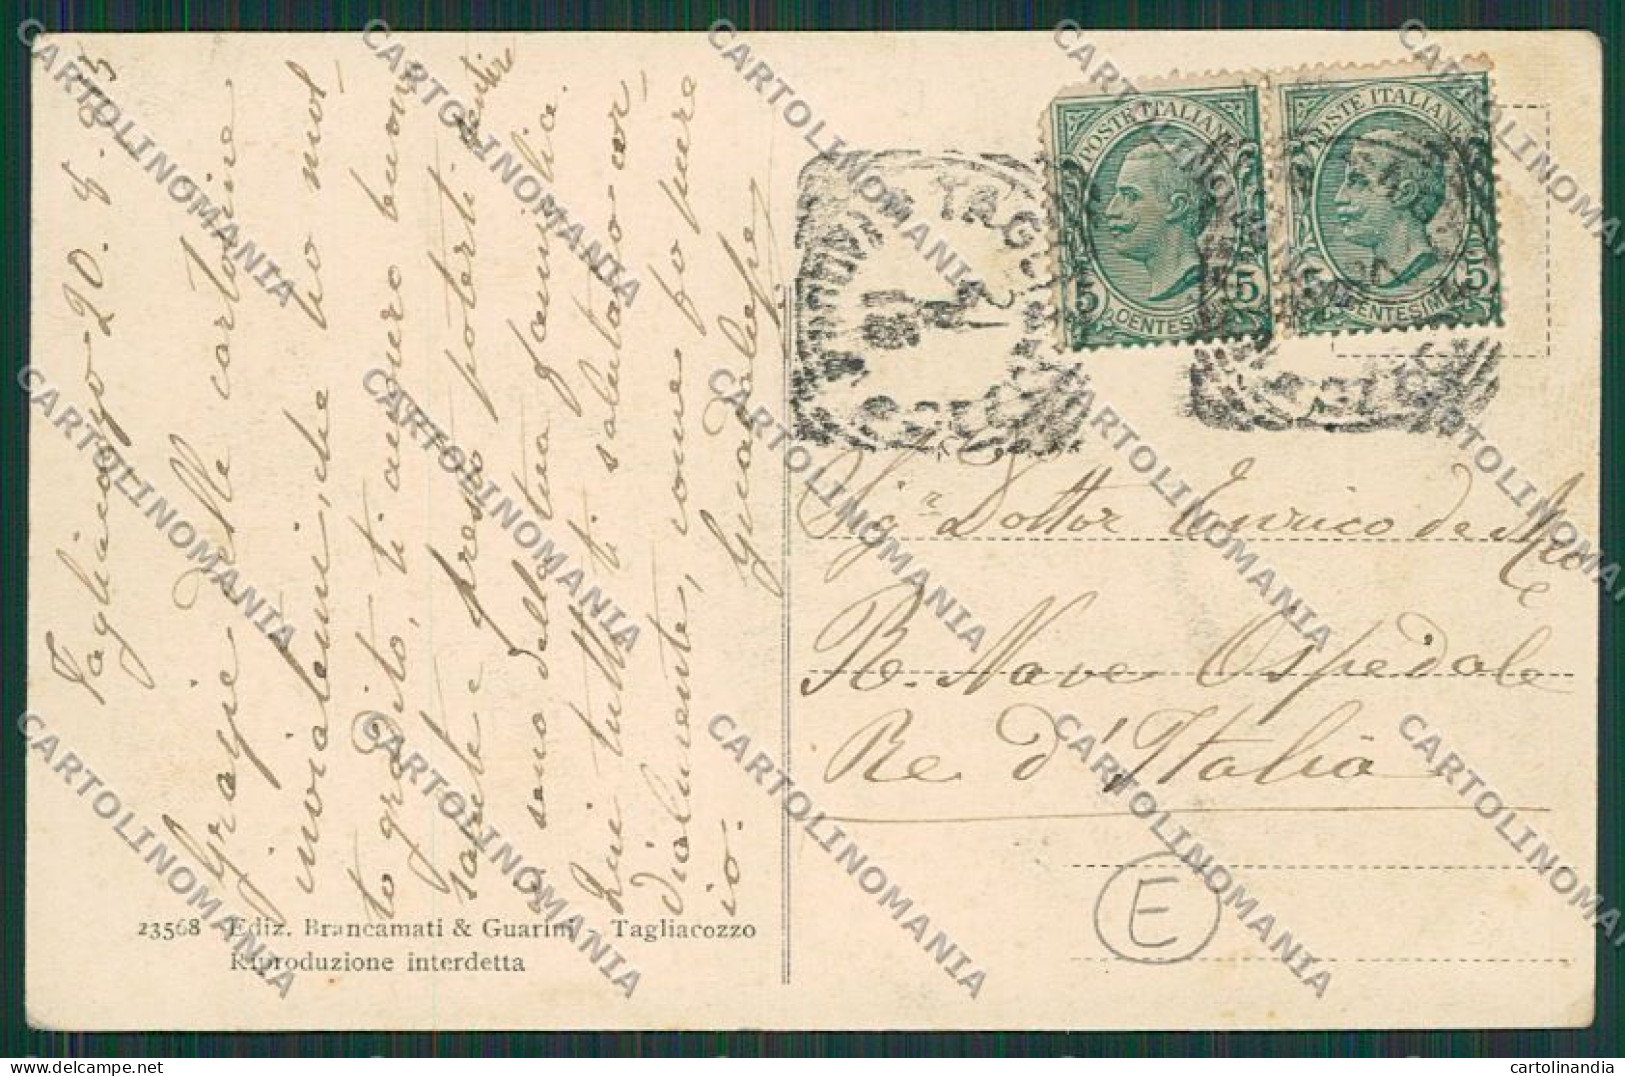 Tagliacozzo 20.8.13
Grazie delle cartoline
inviatemi, che ho mol-
to gradito, ti auguro buona
salute e presto poterti sentire
in seno della tua famiglia.
Qui tutti ti salutano cor-
dialmente, come fo pure
io.
Guadalupe
23568 Ediz. Brancamati & Guarini - Tagliacozzo
Riproduzione interdetta
POSTE ITALIANE
5 5
CENTESIMI
POSTE ITALIANE
5 5
CENTESIMI
Sigr Dottor Enrico de
R. Nave Ospedale
Re d'Italia
E
CARTOLINOMANIA
cartolinandia